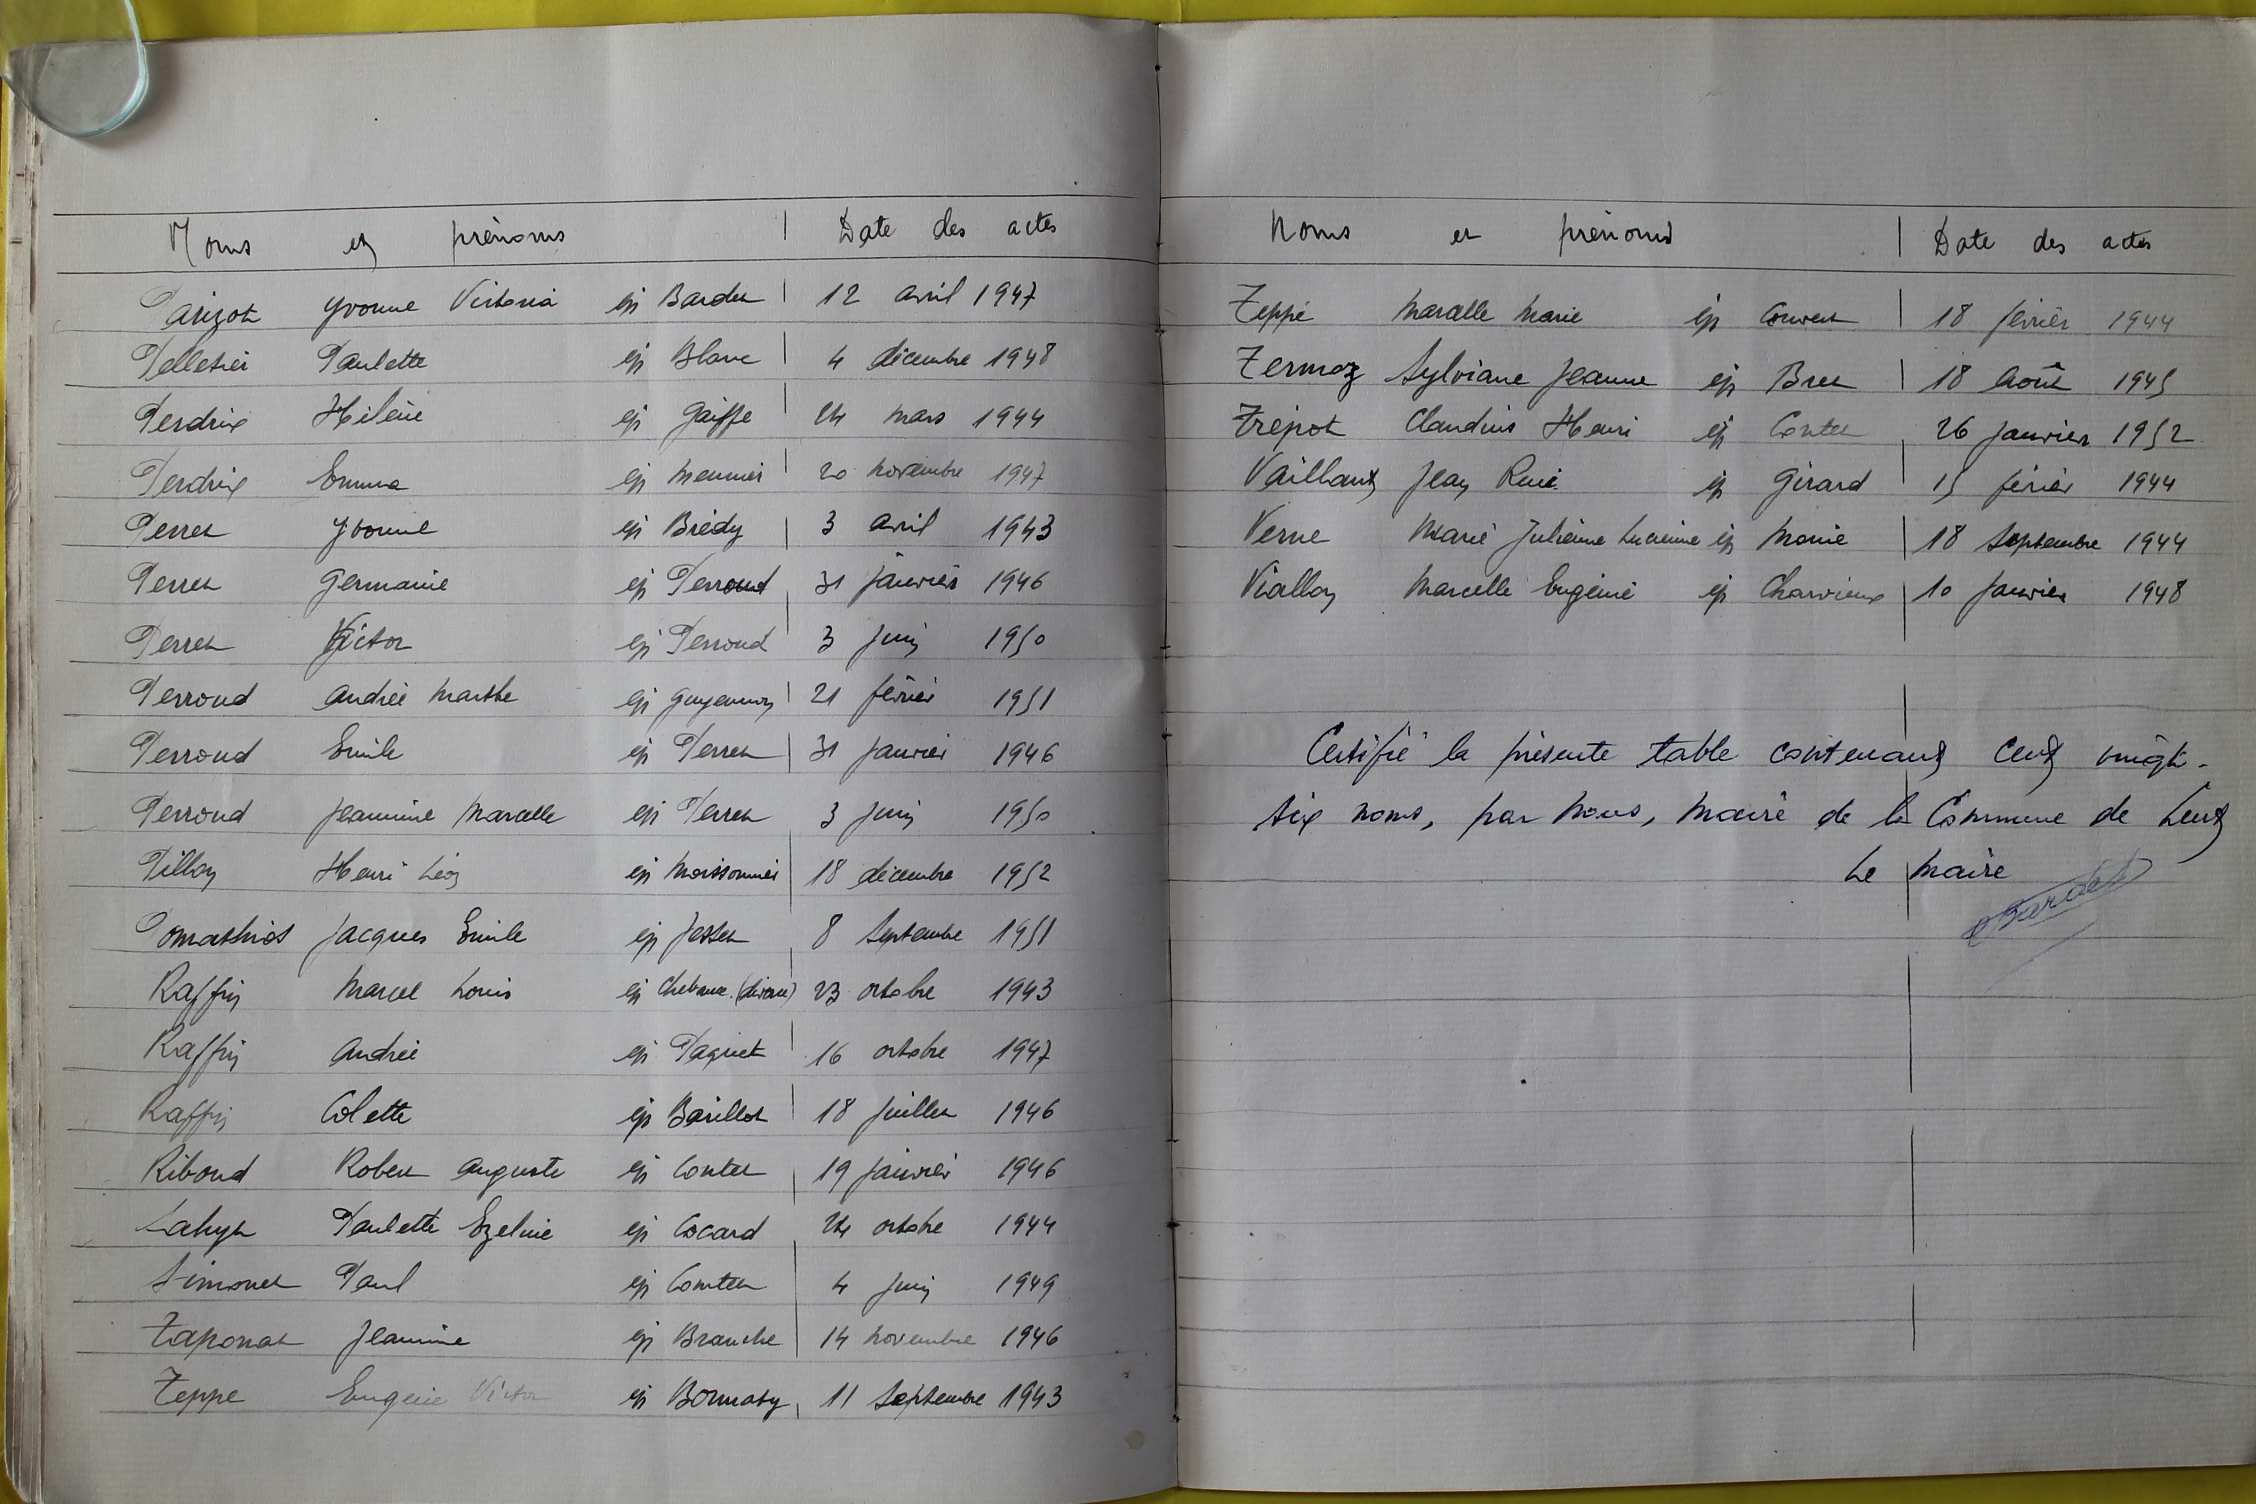 Noms et prénoms Date des actes
Parizot Yvonne Victoria ép Bardet 12 avril 1947
Pelletier Paulette ép Blanc 4 décembre 1948
Perdrix Hélène ép Gaiffe 24 mars 1944
Perdrix Emma ép Meunier 20 novembre 1947
Perret Yvonne ép Brédy 3 avril 1943
Perret Germaine ép Perroud 31 janvier 1946
Perret Victor ép Perroud 3 juin 1950
Perroud Andrée Marthe ép Guyennon 21 février 1951
Perroud Emile ép Perret 31 janvier 1946
Perroud Jeannine Marcelle ép Perret 3 juin 1950
Pillon Henri Léon ép Moissonnier 18 décembre 1952
Pomathios Jacques Emile ép Josset 8 septembre 1951
Raffin Marcel Louis ép (divorcé) 23 octobre 1943
Raffin Andrée ép Paquet 16 octobre 1947
Raffin Colette ép Barillot 18 juillet 1946
Riboud Robert Auguste ép Contet 19 janvier 1946
Paulette Ezeline ép Cocard 24 octobre 1944
Simonet Paul ép Comtet 4 juin 1949
Taponat Jeannine ép Branche 14 novembre 1946
Teppe Eugène Victor ép Bonnaty 11 septembre 1943
Noms et prénoms Date des actes
Teppe Marcelle Marie ép Convert 18 février 1944
Termoz Sylviane Jeanne ép Bret 18 août 1945
Trépot Claudius Henri ép Contet 26 janvier 1952
Vaillant Jean René ép Girard 15 février 1944
Verne Marie Julienne Lucienne ép Morie 18 septembre 1944
Viallon Marcelle Eugénie ép Charvieux 10 janvier 1948
Certifié la présente table contenant cent vingt-
six noms, par nous, maire de la Commune de Lent
Le maire
Bardet